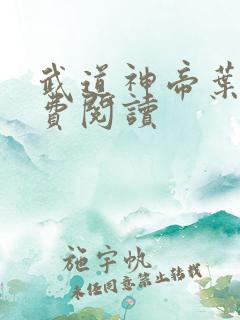 武道神帝葉
費閱讀
施宇帆
未经同意禁止转载